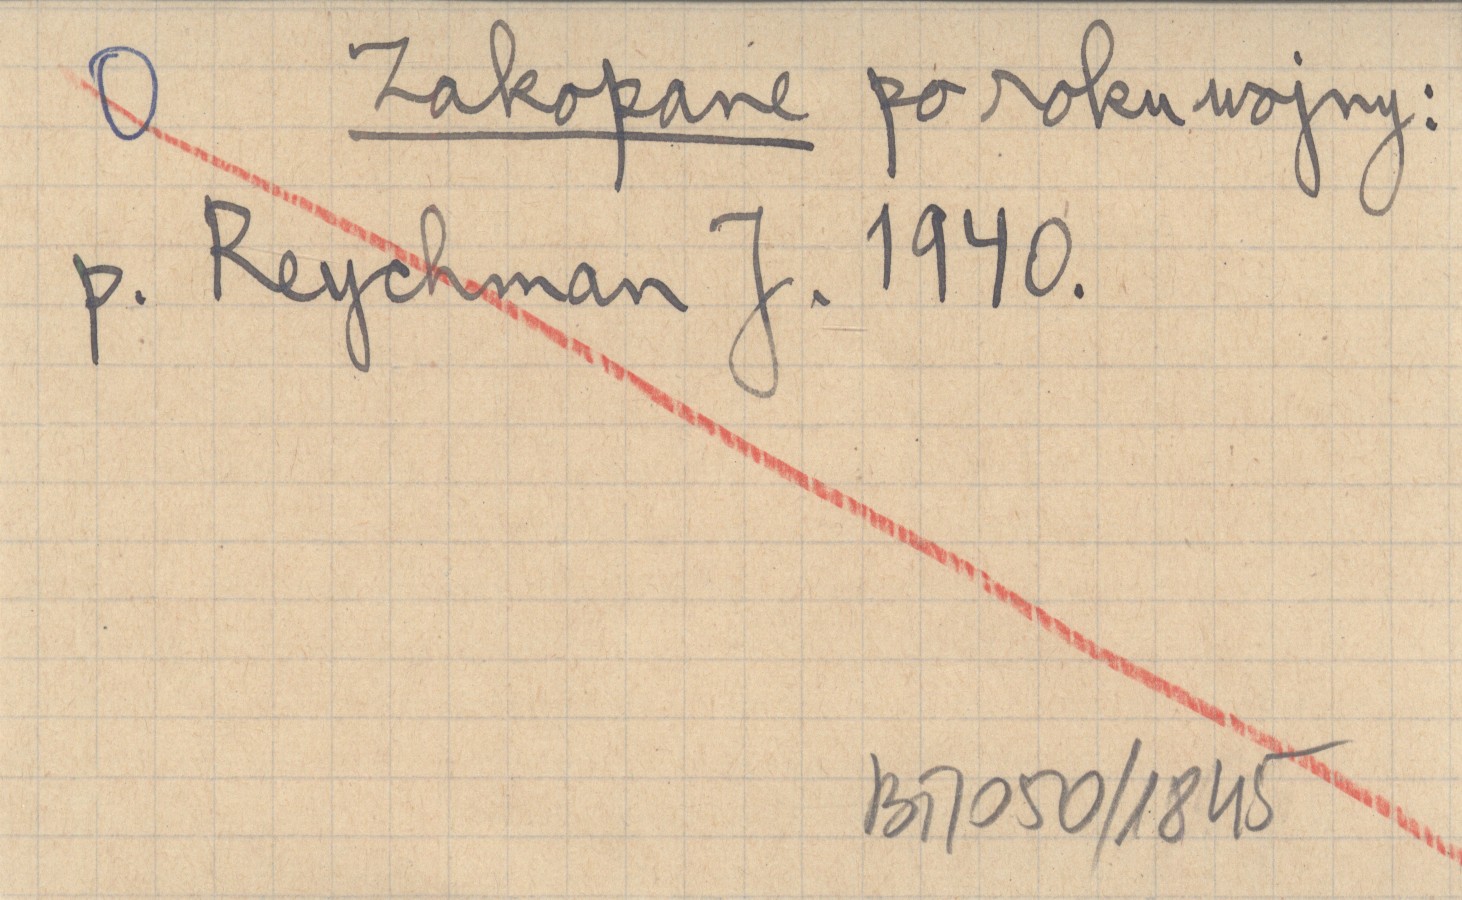 O Zakopane po roku wojny:
p. Reychman J. 1940.
B17050/1845